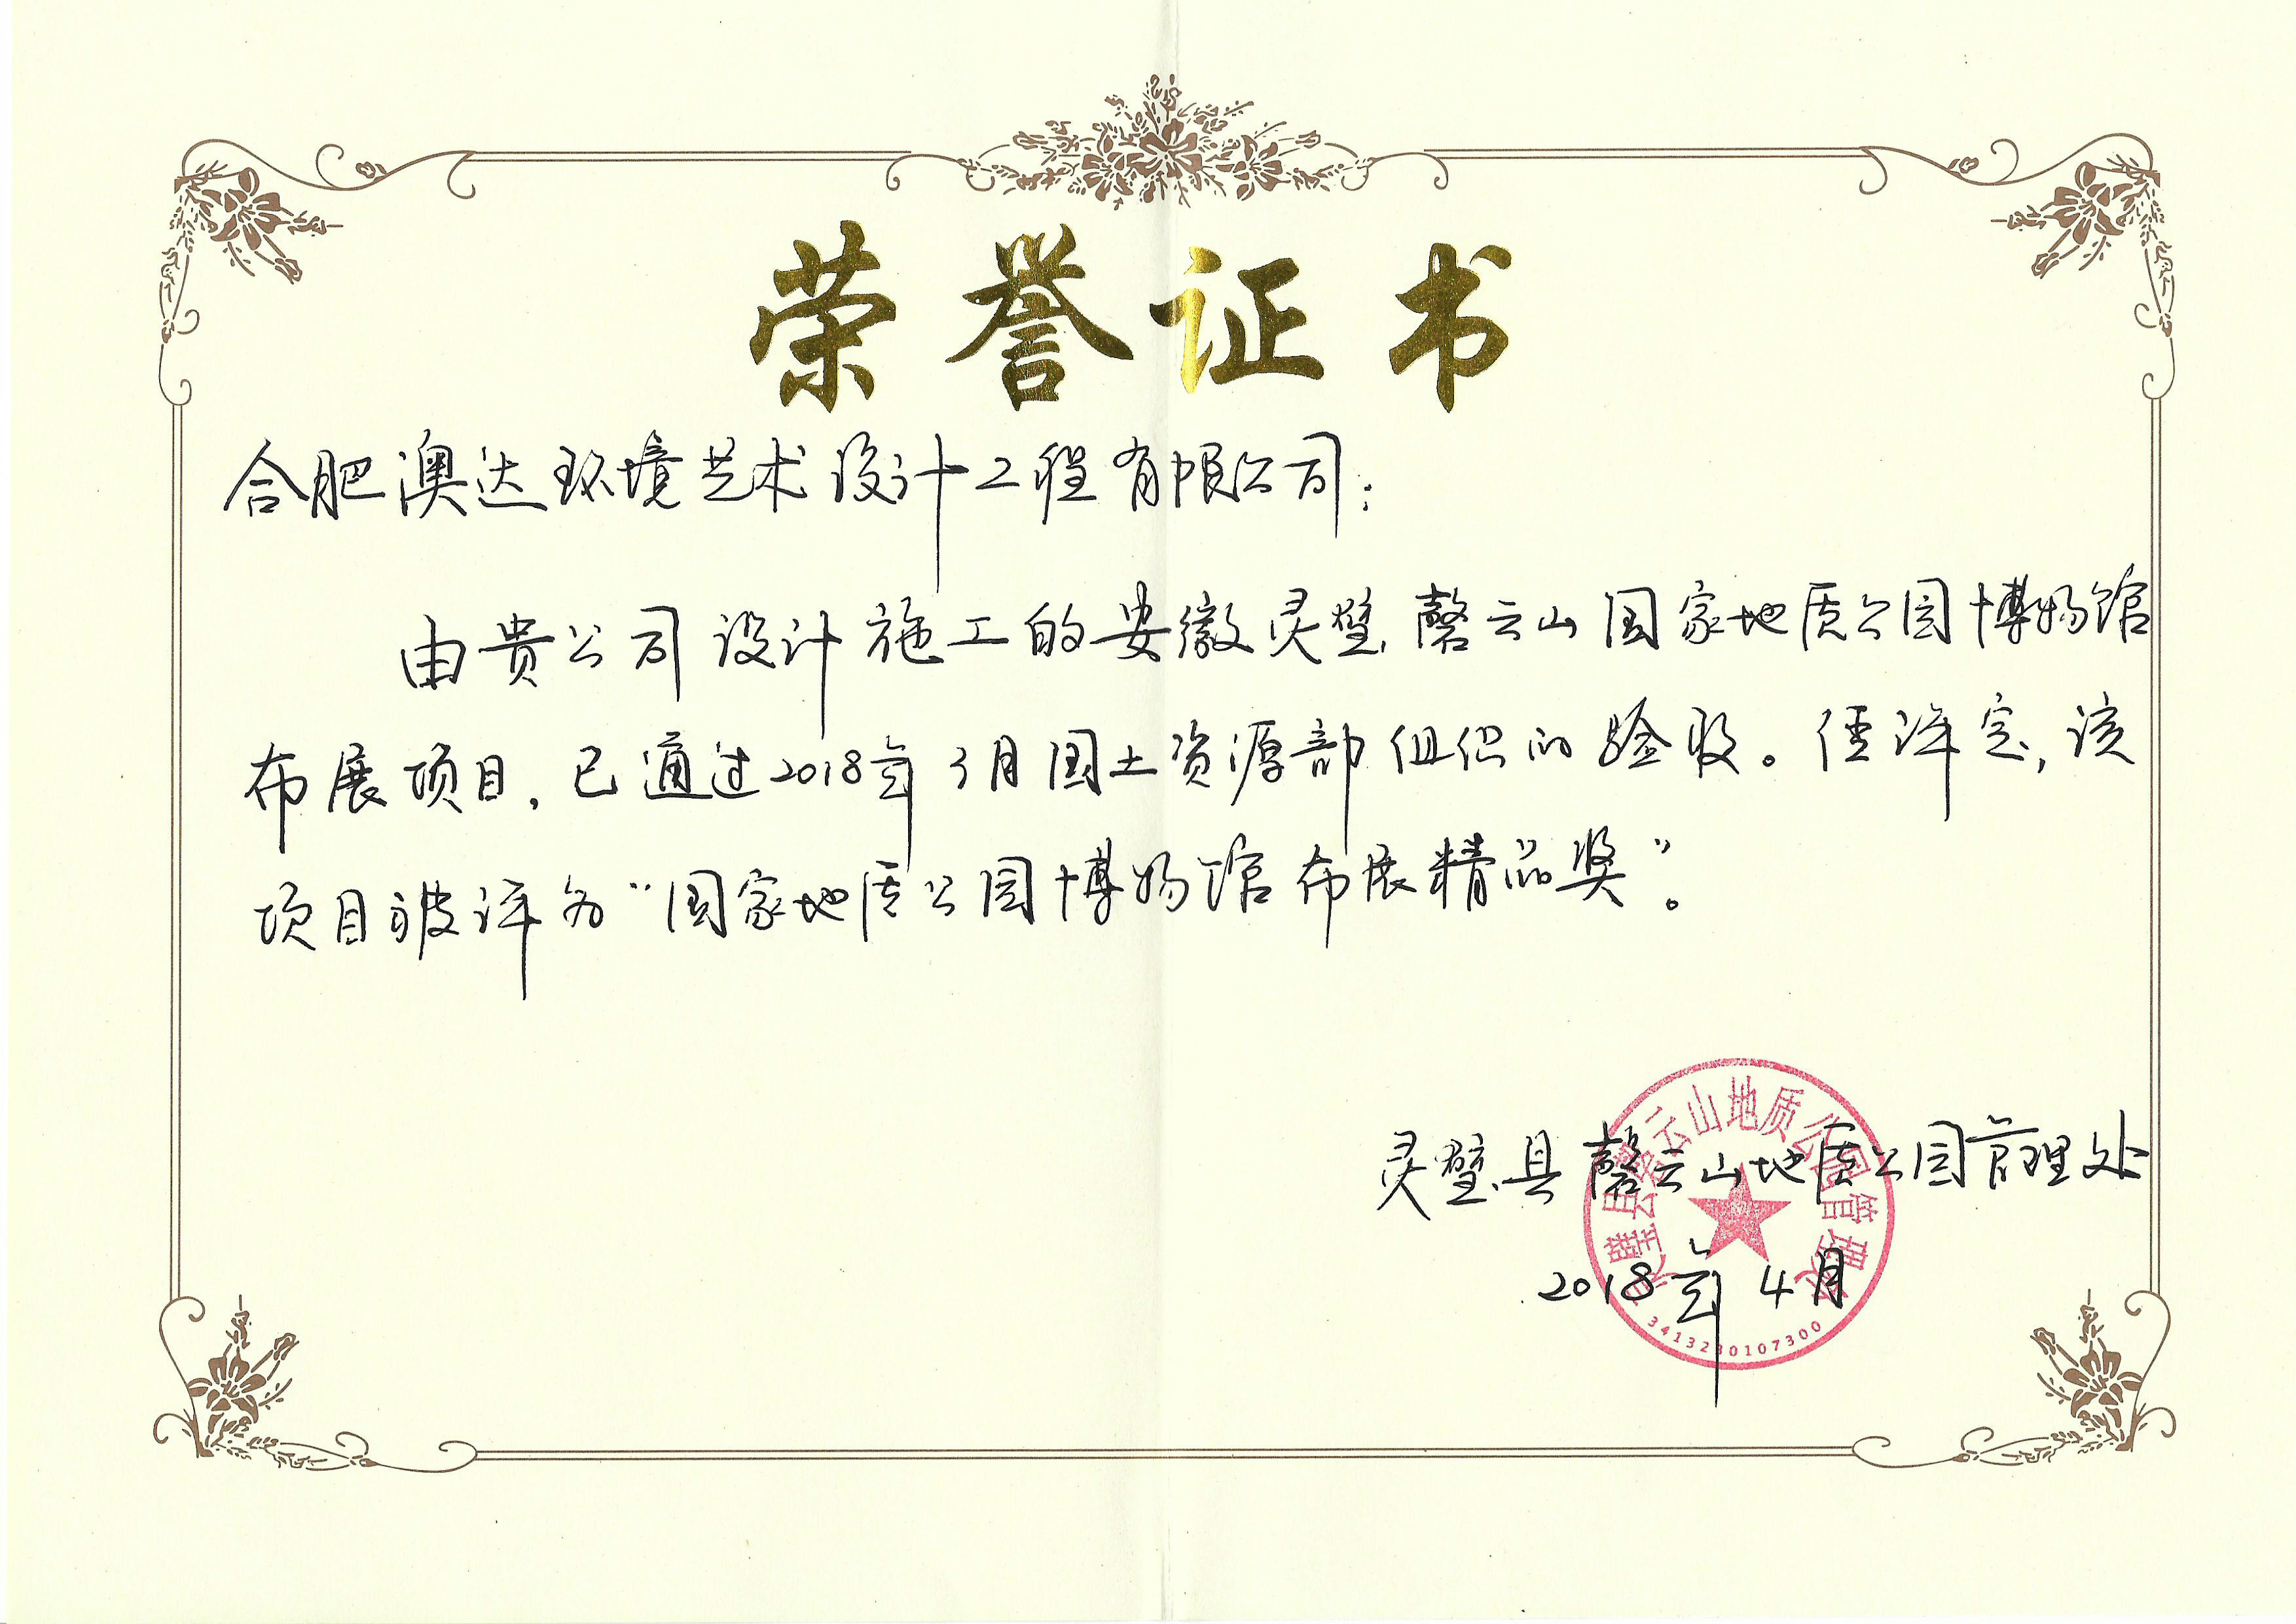 荣誉证书
合肥澳达环境艺术设计工程有限公司：
由贵公司设计施工的安徽灵璧磬云山国家地质公园博物馆
布展项目，已通过2018年3月国土资源部组织的验收。经评定，该
项目被评为“国家地质公园博物馆布展精品奖”。
灵璧县磬云山地质公园管理处
2018年4月
灵璧县磬云山地质公园管理处
3413230107300